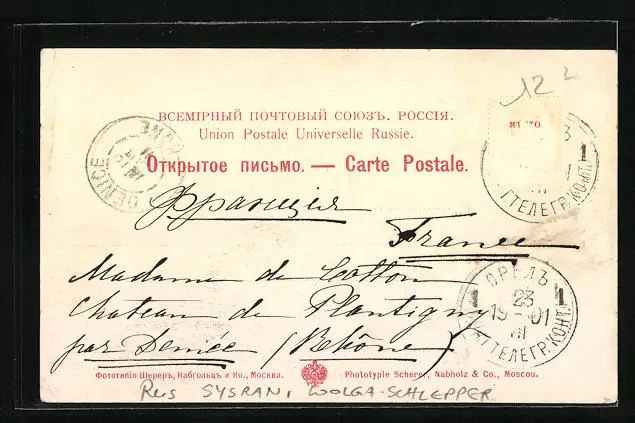 12 2
ВСЕМІРНЫЙ ПОЧТОВЫЙ СОЮЗЪ. РОССІЯ.
Union Postale Universelle Russie.
Открытое письмо. — Carte Postale.
DENICE
RHONE
1
ТЕЛЕГР. КОНТ.
Франція
France
Madame de Cotton
Chateau de Plantigny
par Denicé (Rhône)
ОРЕЛЪ
1 23 1
19-01
VII
ТЕЛЕГР. КОНТ.
Фототипія Шереръ, Набгольцъ и Ко., Москва.
Phototypie Scherer, Nabholz & Co., Moscou.
Rus SYSRAN, WOLGA-SCHLEPPER